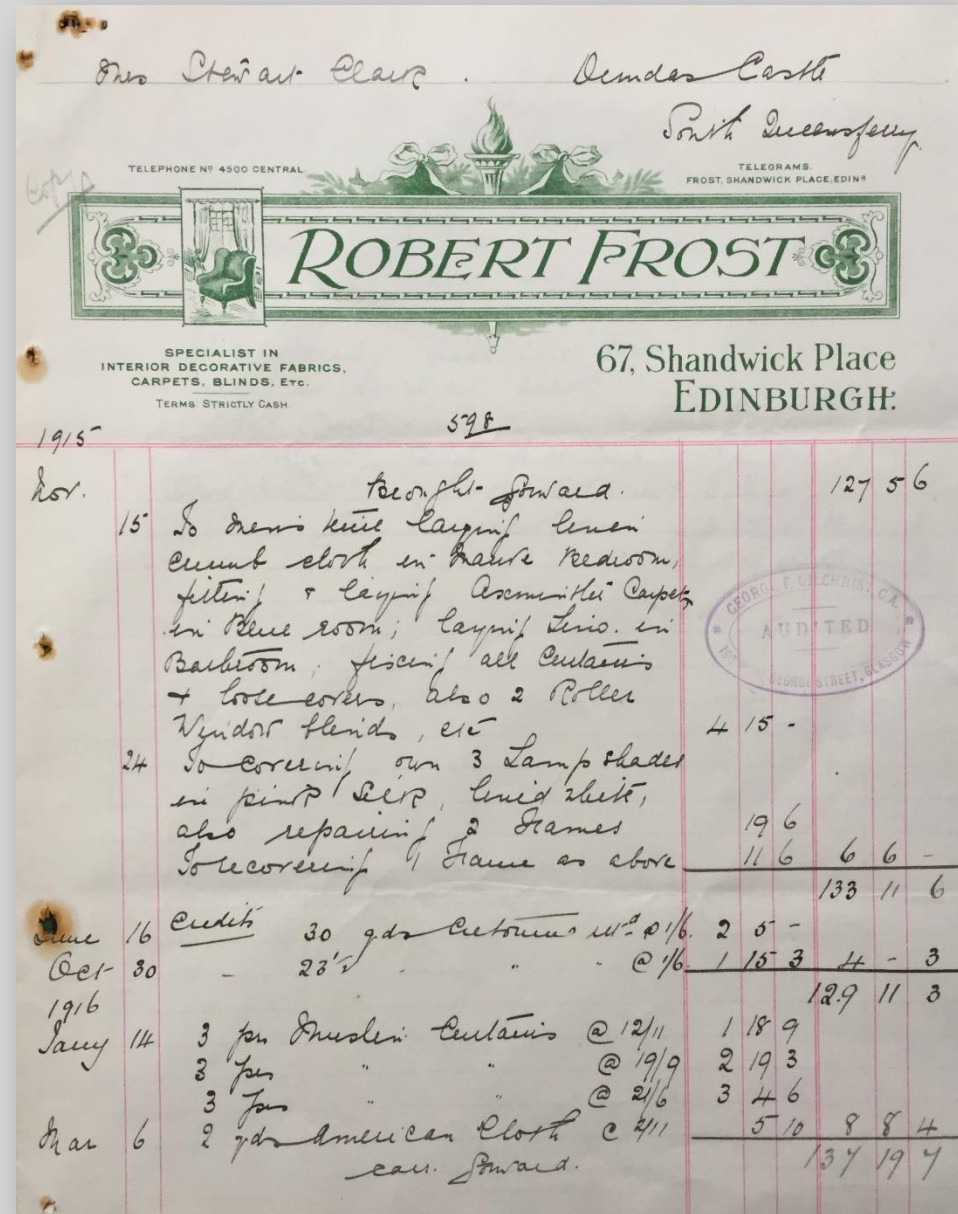 Mrs Stewart Clark. Dundas Castle
South Queensferry
TELEPHONE Nº 4500 CENTRAL.
TELEGRAMS.
FROST, SHANDWICK PLACE, EDINR
Copy
ROBERT FROST
SPECIALIST IN
INTERIOR DECORATIVE FABRICS,
CARPETS, BLINDS, ETC.
TERMS STRICTLY CASH.
67, Shandwick Place
EDINBURGH:
598
1915
Nov. Brought forward. 127 5 6
15 To men's time laying linen
crumb cloth in Mauve Bedroom,
fitting & laying Axminster Carpet
in Blue room; laying Lino. in
Bathroom; fixing all Curtains
& loose covers, also 2 Roller
Window blinds, etc 4 15 -
24 To covering own 3 Lampshades
in pink silk, lined white,
also repairing 2 frames 19 6
To recovering 1 frame as above 11 6 6 6 -
133 11 6
June 16 Credits 30 yds Cretonne @ 1/6. 2 5 -
Oct 30 - 23½ " " " @ 1/6. 1 15 3 4 - 3
129 11 3
1916
Jany 14 3 prs Muslin Curtains @ 12/11 1 18 9
3 prs " " @ 19/9 2 19 3
3 prs " " @ 21/6 3 4 6
Mar 6 2 yds American Cloth @ 2/11 5 10 8 8 4
carr. forward. 137 19 7
GEORGE F GILCHRIST, C.A.
AUDITED
GEORGE STREET, GLASGOW